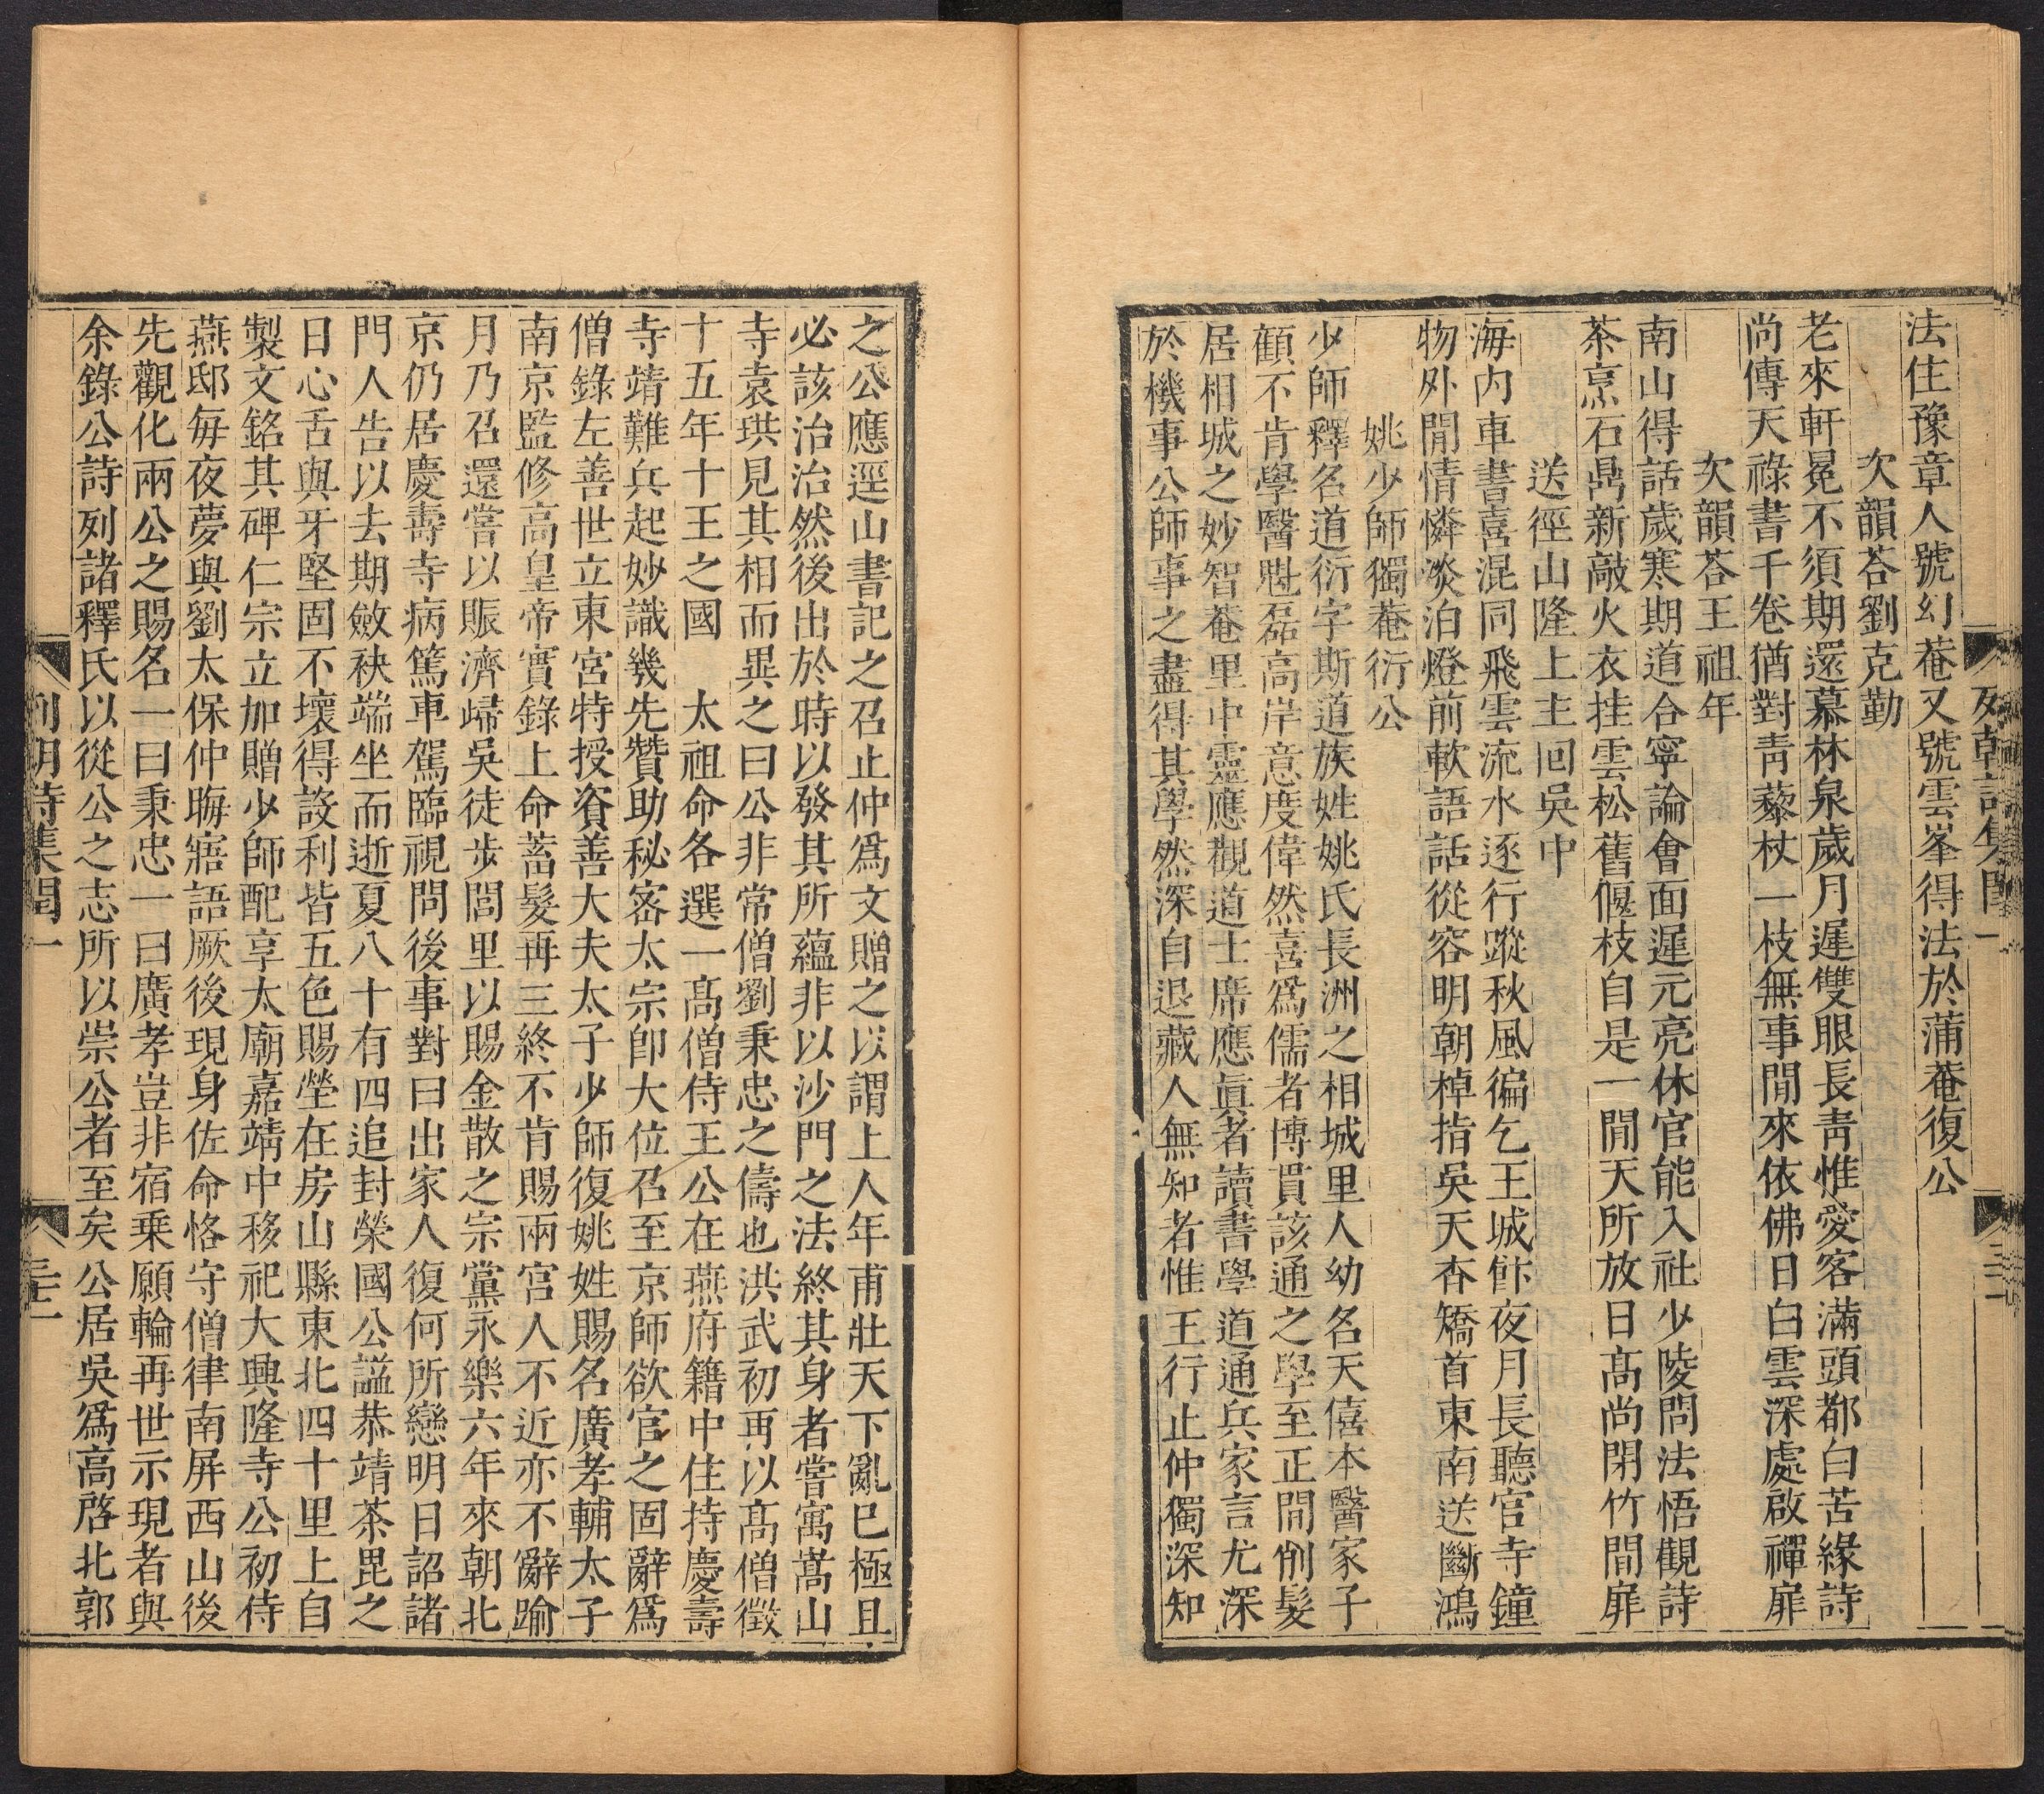 法住豫章人號幻菴又號雲峯得法於蒲菴復公
次韻荅劉克勤
老來軒冕不須期還慕林泉歲月遲雙眼長青惟愛客滿頭都白苦緣詩
尚傳天祿書千卷猶對青藜杖一枝無事閒來依佛日白雲深處啟禪扉
次韻荅王祖年
南山得話歲寒期道合寧論會面遲元亮休官能入社少陵問法悟觀詩
茶烹石鼎新敲火衣挂雲松舊偃枝自是一閒天所放日高尚閉竹間扉
送徑山隆上主回吳中
海內車書喜混同飛雲流水逐行蹤秋風徧乞王城飰夜月長聽官寺鐘
物外閒情憐淡泊燈前軟語話從容明朝棹指吳天杳矯首東南送斷鴻
姚少師獨菴衍公
少師釋名道衍字斯道族姓姚氏長洲之相城里人幼名天僖本醫家子
顧不肯學醫魁磊高岸意度偉然喜爲儒者博貫該通之學至正間削髮
居相城之妙智菴里中靈應觀道士席應眞者讀書學道通兵家言尤深
於機事公師事之盡得其學然深自退藏人無知者惟王行止仲獨深知
之公應逕山書記之召止仲爲文贈之以謂上人年甫壯天下亂已極且
必該治治然後出於時以發其所蘊非以沙門之法終其身者嘗寓嵩山
寺袁珙見其相而異之曰公非常僧劉秉忠之儔也洪武初再以高僧徵
十五年十王之國　太祖命各選一高僧侍王公在燕府籍中住持慶壽
寺靖難兵起妙識幾先贊助秘密太宗卽大位召至京師欲官之固辭爲
僧錄左善世立東宮特授資善大夫太子少師復姚姓賜名廣孝輔太子
南京監修高皇帝實錄上命蓄髮再三終不肯賜兩宮人不近亦不辭踰
月乃召還嘗以賑濟歸吳徒步閭里以賜金散之宗黨永樂六年來朝北
京仍居慶壽寺病篤車駕臨視問後事對曰出家人復何所戀明日詔諸
門人告以去期斂袂端坐而逝夏八十有四追封榮國公謚恭靖茶毘之
日心舌與牙堅固不壞得設利皆五色賜塋在房山縣東北四十里上自
製文銘其碑仁宗立加贈少師配享太廟嘉靖中移祀大興隆寺公初侍
燕邸每夜夢與劉太保仲晦寤語厥後現身佐命恪守僧律南屏西山後
先觀化兩公之賜名一曰秉忠一曰廣孝豈非宿乗願輪再世示現者與
余錄公詩列諸釋氏以從公之志所以崇公者至矣公居吳爲高啓北郭